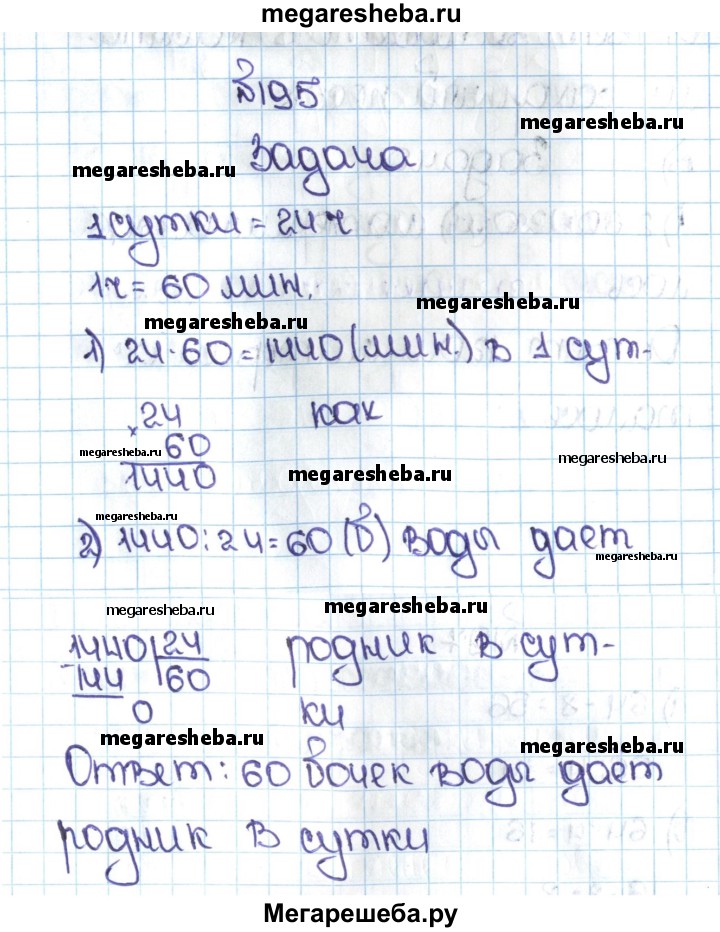 megaresheba.ru
№195
megaresheba.ru
megaresheba.ru
Задача
1 сутки = 24 ч
1 ч = 60 мин.
megaresheba.ru
megaresheba.ru
1) 24·60=1440 (мин.) в 1 сут-
× 24 как
megaresheba.ru 60
megaresheba.ru
1440
megaresheba.ru
megaresheba.ru
2) 1440:24=60 (б) воды дает
megaresheba.ru
megaresheba.ru
megaresheba.ru
1440 | 24 родник в сут-
-144 | 60
0 ки
megaresheba.ru
megaresheba.ru
Ответ: 60 бочек воды дает
родник в сутки
Мегарешеба.ру